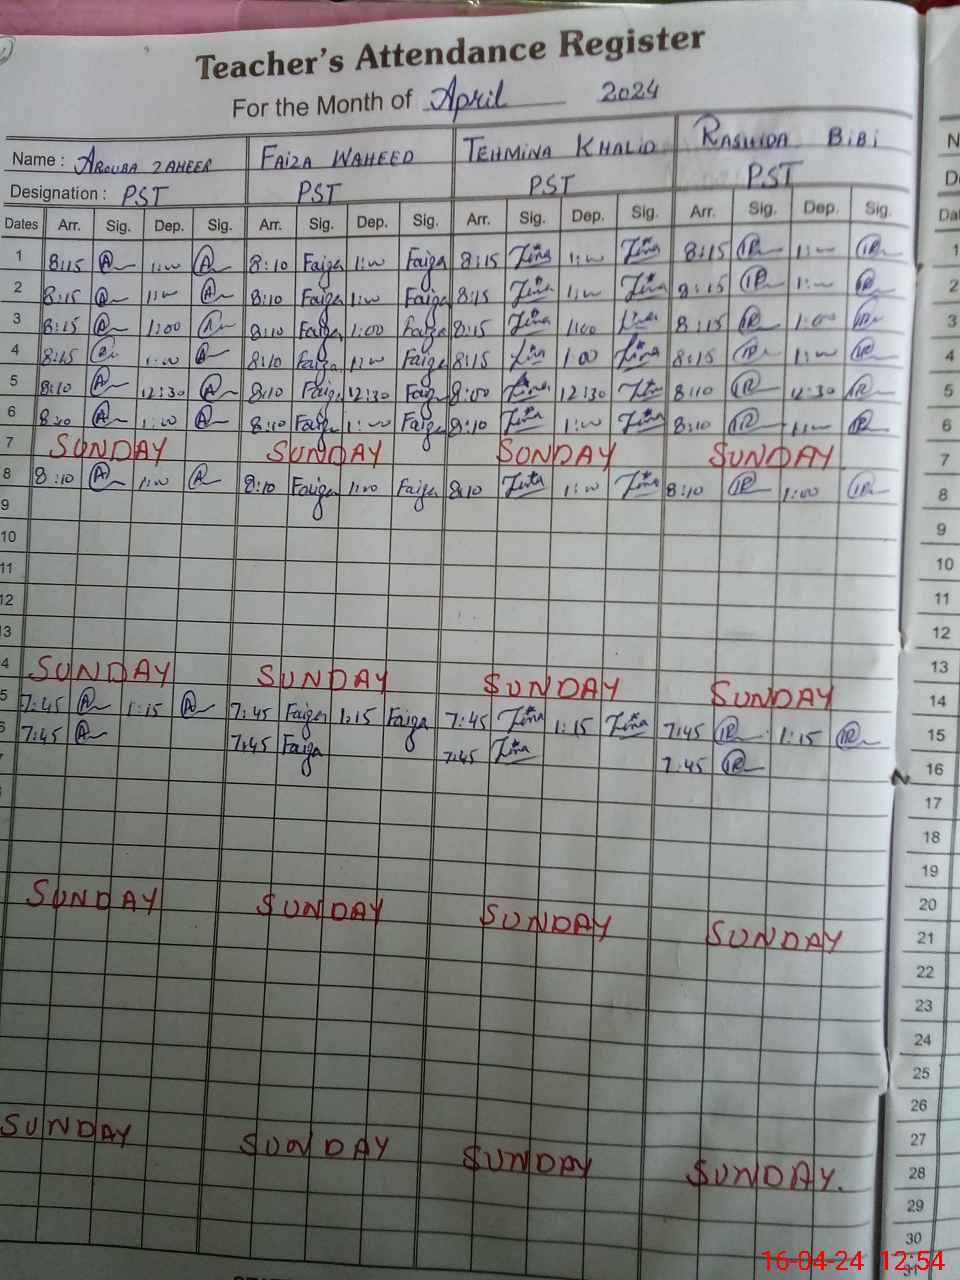 Teacher's Attendance Register
For the Month of April 2024
Name : AROUBA ZAHEER FAIZA WAHEED TEHMINA KHALID RASHIDA BIBI
Designation : PST PST PST PST
Dates Arr. Sig. Dep. Sig. Arr. Sig. Dep. Sig. Arr. Sig. Dep. Sig. Arr. Sig. Dep. Sig.
1 8:15 1:00 8:10 Faiza 1:00 Faiza 8:15 1:00 8:15 1:00 1
2 8:15 1:00 8:10 Faiza 1:00 Faiza 8:15 1:00 8:15 1:00 2
3 8:15 1:00 8:10 Faiza 1:00 Faiza 8:15 1:00 8:15 1:00 3
4 8:15 1:00 8:10 Faiza 1:00 Faiza 8:15 1:00 8:15 1:00 4
5 8:10 12:30 8:10 Faiza 12:30 Faiza 8:00 12:30 8:10 12:30 5
6 8:10 1:00 8:10 Faiza 1:00 Faiza 8:10 1:00 8:10 1:00 6
7 SUNDAY SUNDAY SUNDAY SUNDAY 7
8 8:10 1:00 8:10 Faiza 1:00 Faiza 8:10 1:00 8:10 1:00 8
9 9
10 10
11 11
12 12
13 13
4 SUNDAY SUNDAY SUNDAY SUNDAY 14
5 7:45 1:15 7:45 Faiza 1:15 Faiza 7:45 1:15 7:45 1:15 15
6 7:45 7:45 Faiza 7:45 7:45 16
17
18
19
20
SUNDAY SUNDAY SUNDAY SUNDAY 21
22
23
24
25
26
27
SUNDAY SUNDAY SUNDAY SUNDAY. 28
29
30
31
16-04-24 12:54